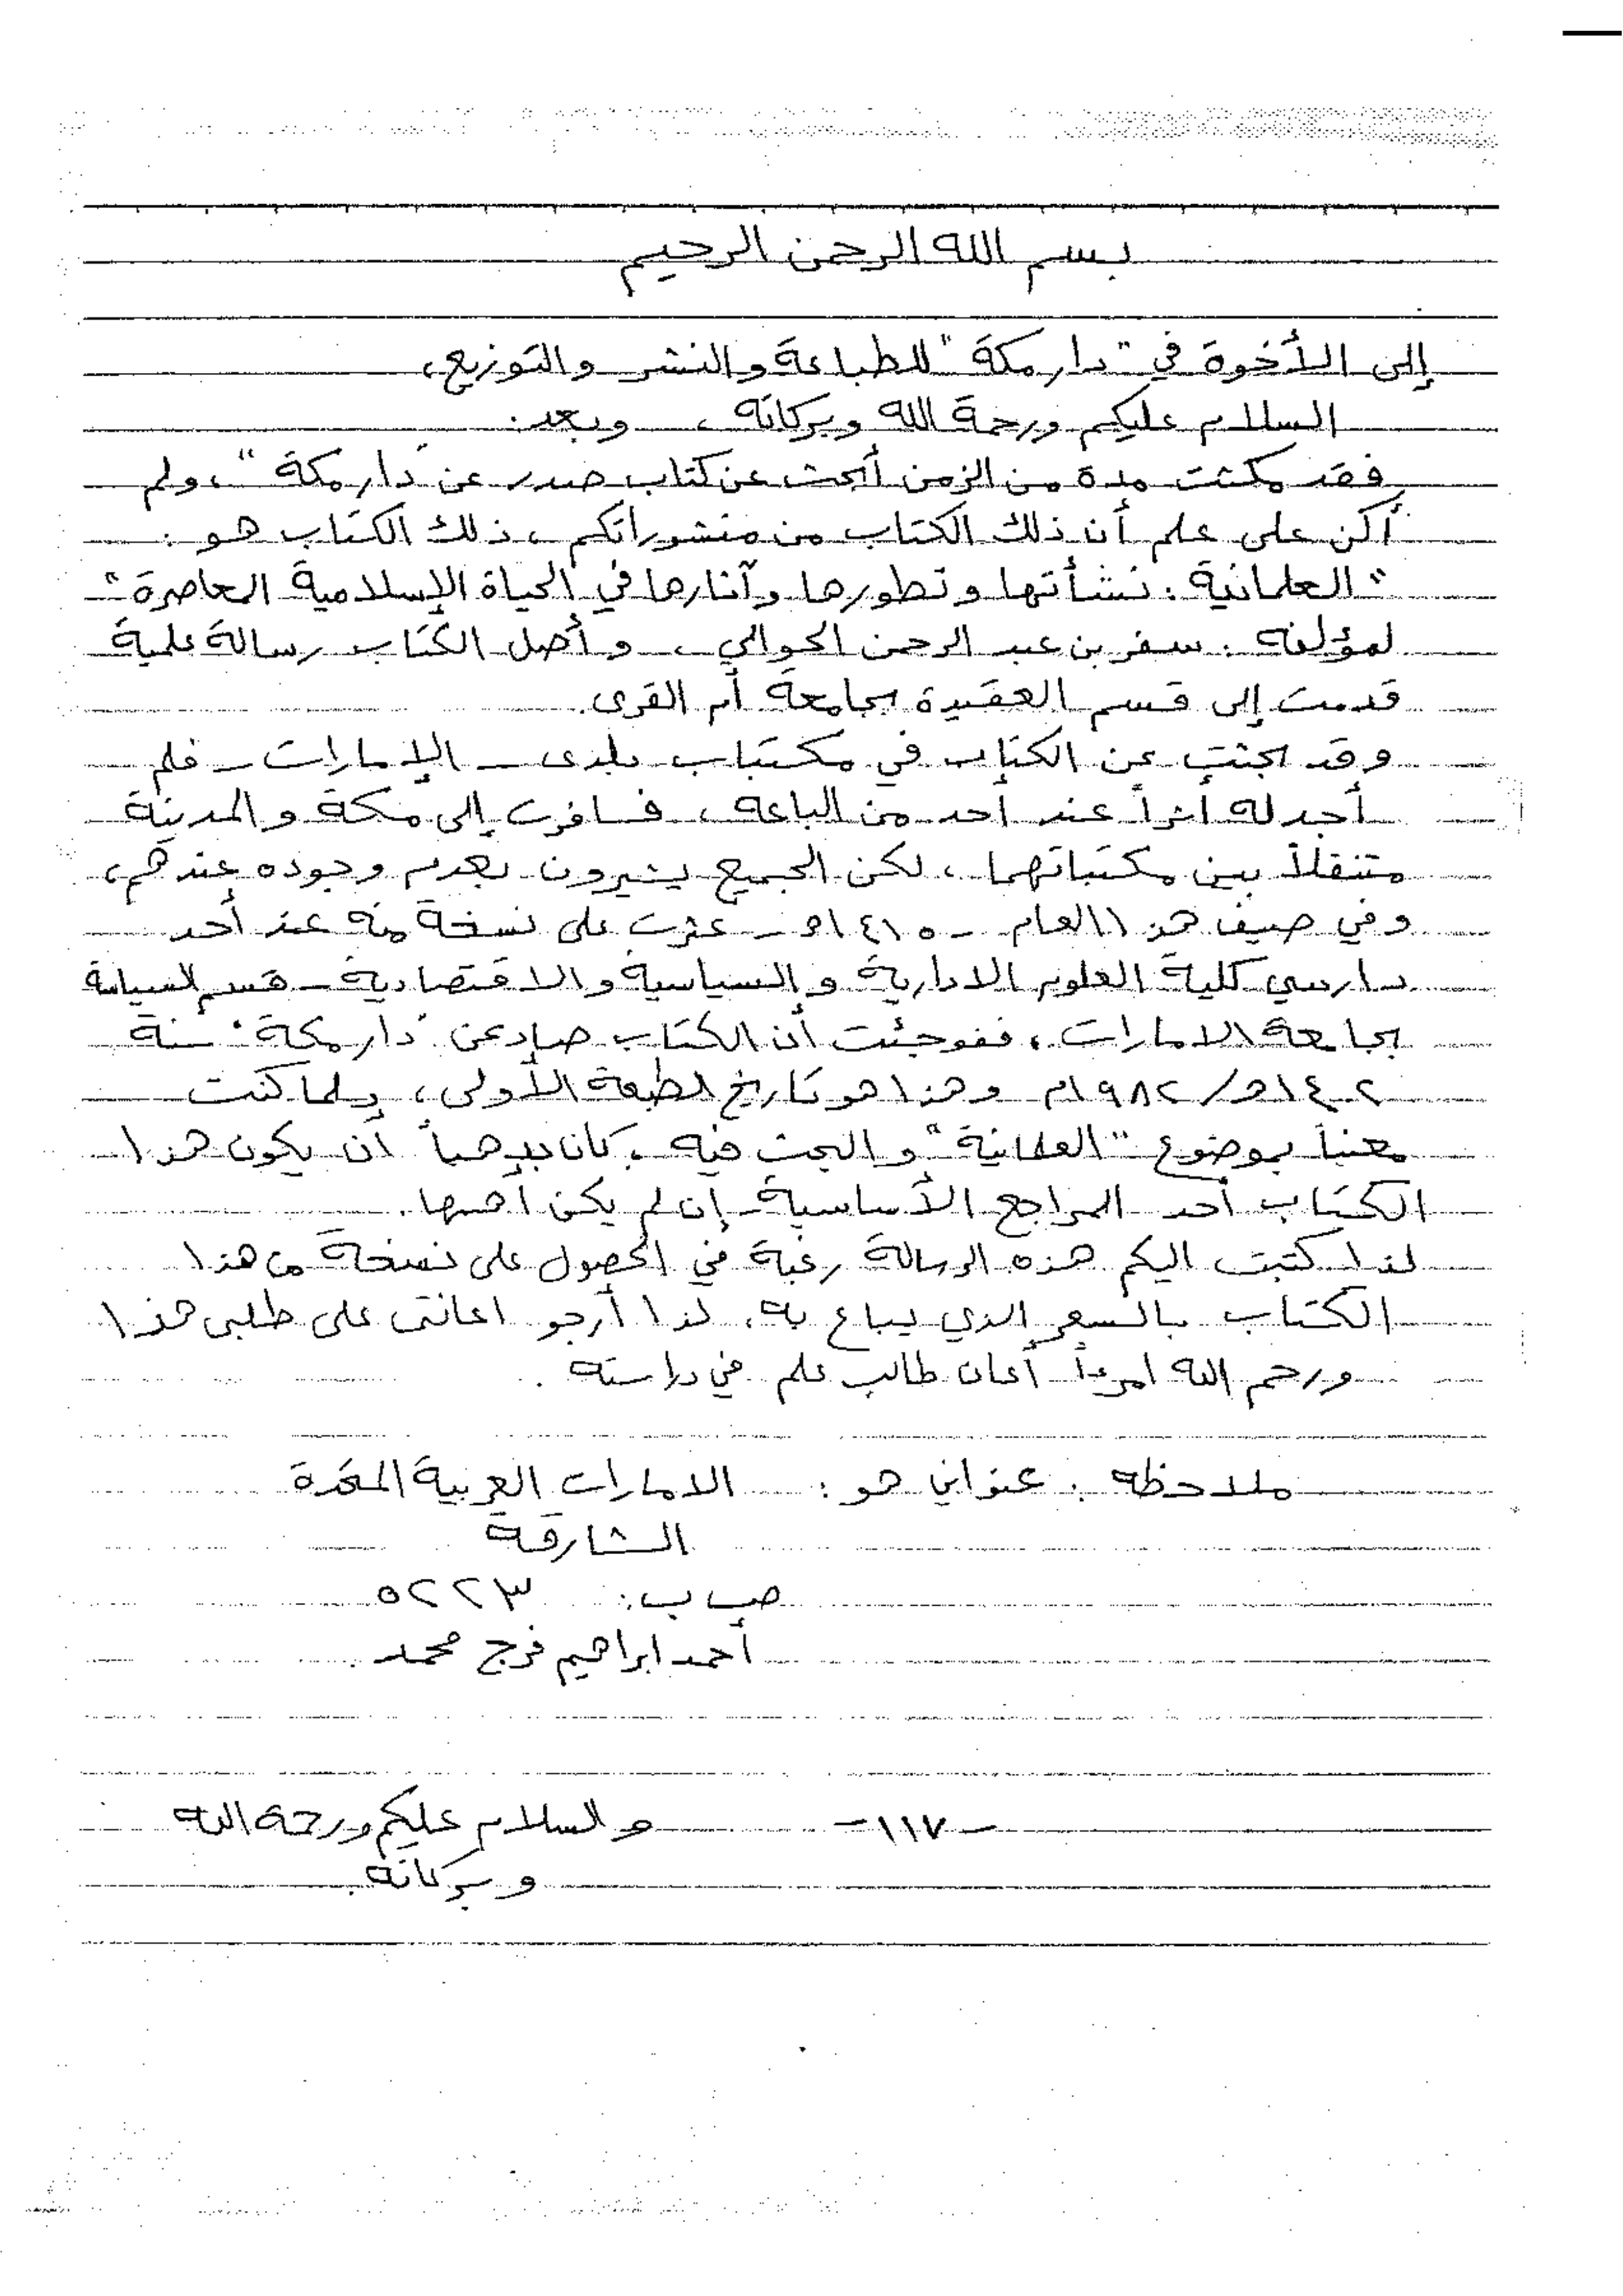 بسم الله الرحمن الرحيم
إلى الأخوة في "دار مكة" للطباعة والنشر والتوزيع،
السلام عليكم ورحمة الله وبركاته، وبعد:
فقد مكثت مدة من الزمن أبحث عن كتاب صدر عن "دار مكة"، ولم
أكن على علم أن ذلك الكتاب من منشوراتكم، ذلك الكتاب هو:
"العلمانية: نشأتها وتطورها وآثارها في الحياة الإسلامية المعاصرة"
لمؤلفه: سفر بن عبد الرحمن الحوالي، وأصل الكتاب رسالة علمية
قدمت إلى قسم العقيدة بجامعة أم القرى.
وقد بحثت عن الكتاب في مكتبات بلدى - الإمارات - فلم
أجد له أثراً عند أحد من الباعه، فسافرت إلى مكة والمدينة
متنقلاً بين مكتباتهما، لكن الجميع يشيرون بعدم وجوده عندهم،
وفي صيف هذا العام - ١٤١٥هـ - عثرت على نسخة منه عند أحد
دارسي كلية العلوم الادارية والسياسية والاقتصادية - قسم السياسة
بجامعة الامارات، ففوجئت أن الكتاب صادر عن "دار مكة" سنة
١٤٠٢هـ/١٩٨٢م وهذا هو تاريخ الطبعة الأولى، ولما كنت
معنياً بموضوع "العلمانية" والبحث فيه، كان بديهياً أن يكون هذا
الكتاب أحد المراجع الأساسية - إن لم يكن أهمها.
لذا كتبت اليكم هذه الرسالة رغبة في الحصول على نسخة من هذا
الكتاب بالسعر الذي يباع به، لذا أرجو اعانتى على طلبى هذا
ورحم الله امرءاً أعان طالب علم في دراسته.
ملاحظه: عنواني هو: الامارات العربية المتحدة
الشارقة
ص ب: ٥٢٢٣
أحمد ابراهيم فرج محمد
- ١١٧ - والسلام عليكم ورحمة الله
وبركاته